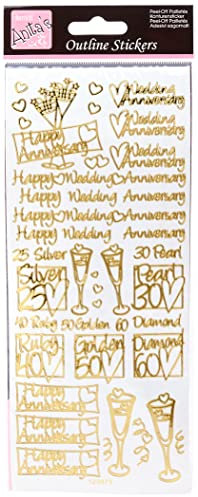 Anita's
Outline Stickers
Peel-Off Pailletés
Wedding
Anniversary
Happy
Anniversary
Wedding
Anniversary
Happy Wedding Anniversary
Happy Wedding Anniversary
Happy Wedding Anniversary
Happy Wedding Anniversary
25 Silver 30 Pearl
Silver
25
Pearl
30
40 Ruby 50 Golden 60 Diamond
Ruby
40
Golden
50
Diamond
60
Happy
Anniversary
Happy
Anniversary
Happy
Anniversary